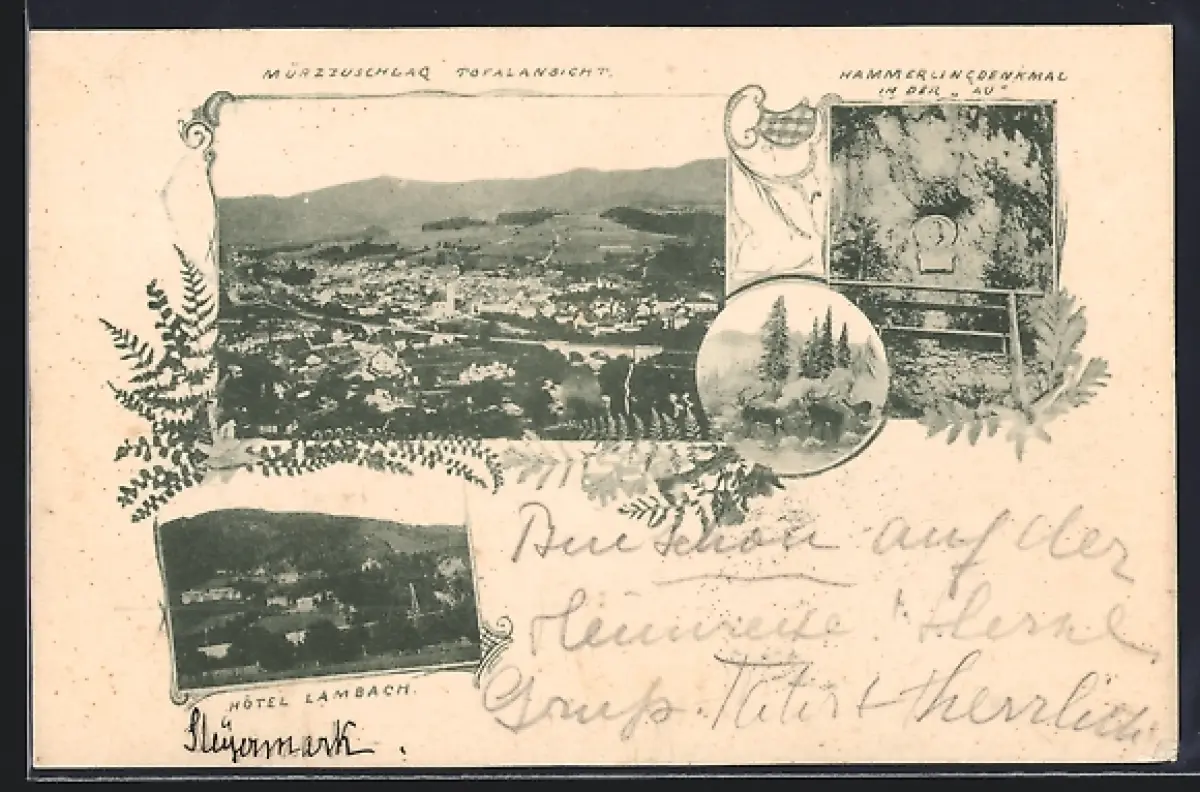 MÜRZZUSCHLAG TOTALANSICHT.
HAMMERLINGDENKMAL
IN DER „AU"
HÔTEL LAMBACH.
Steyermark.
Bin schon auf der
Heimreise!
Gruss.